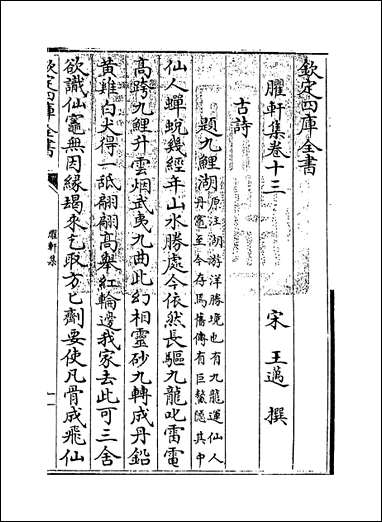 欽定四庫全書
臞軒集卷十三
宋 王邁 撰
古詩
題九鯉湖 原注湖游洋勝境也有九龍運仙人
丹竈至今存焉舊傳有巨鰲隱其中
仙人蟬蛻幾經年山水勝處今依然長驅九龍叱雷電
高跨九鯉升雲烟武夷九曲此幻相靈砂九轉成丹鉛
黄雞白犬得一舐翩翩髙舉紅輪邊我家去此可三舍
欲識仙竈無因緣朅來乞取方匕劑要使凡骨成飛仙
欽定四庫全書
臞軒集
一